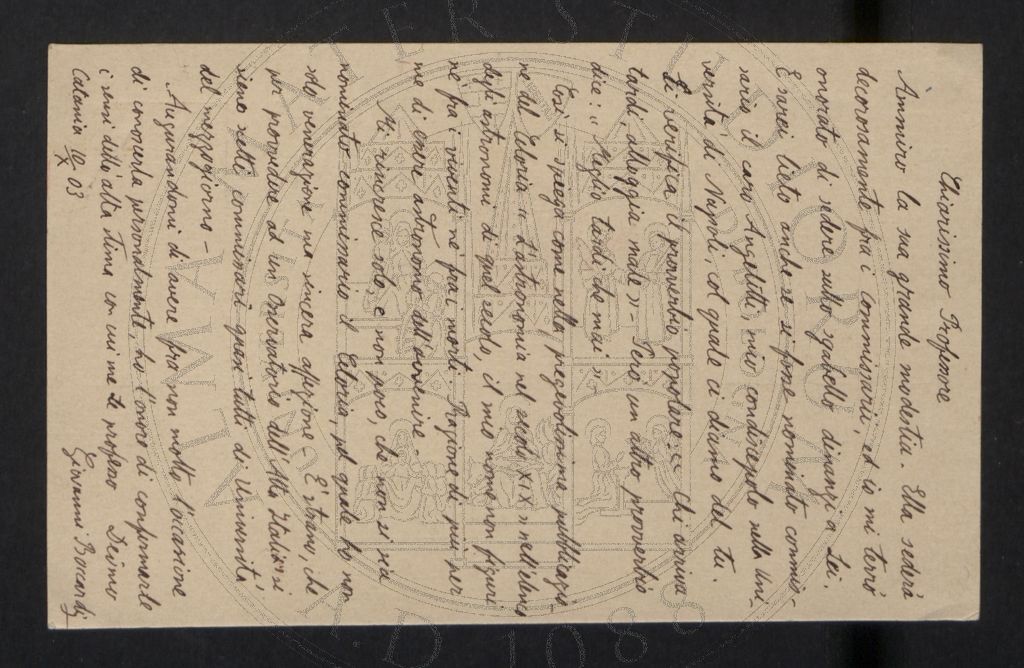 Chiarissimo Professore
Ammiro la sua grande modestia. Ella sederà
decorosamente fra i commissarii, ed io mi terrò
onorato di sedere sullo sgabello dinanzi a Lei.
E sarei lieto anche se si fosse nominato commis-
sario il caro Angelitti, mio condiscepolo nella Uni-
versità di Napoli, col quale ci diamo del tu.
Si verifica il proverbio popolare: « Chi arriva
tardi alloggia male » – Però un altro proverbio
dice: « Meglio tardi che mai ».
Così si spiega come nella pregevolissima pubblicazio
ne del Celoria « L'astronomia nel secolo XIX » nell'elenco
degli astronomi di quel secolo, il mio nome non figuri
ne fra i vivi ne fra i morti. Ragione di più per
me di essere astronomo dell'avvenire –
Mi rincresce solo, e non poco, che non si sia
nominato commissario il Celoria, pel quale ho non
solo venerazione ma sincera affezione – È strano, che
per provvedere ad un Osservatorio dell'Alta Italia si
sieno scelti commissari quasi tutti di Università
del mezzogiorno –
Augurandomi di avere fra non molto l'occasione
di conoscerla personalmente, ho l'onore di confermarle
i sensi della alta stima con cui me Le professo Devmo
Catania 10/X 03
Giovanni Boccardi
A.D. 1088